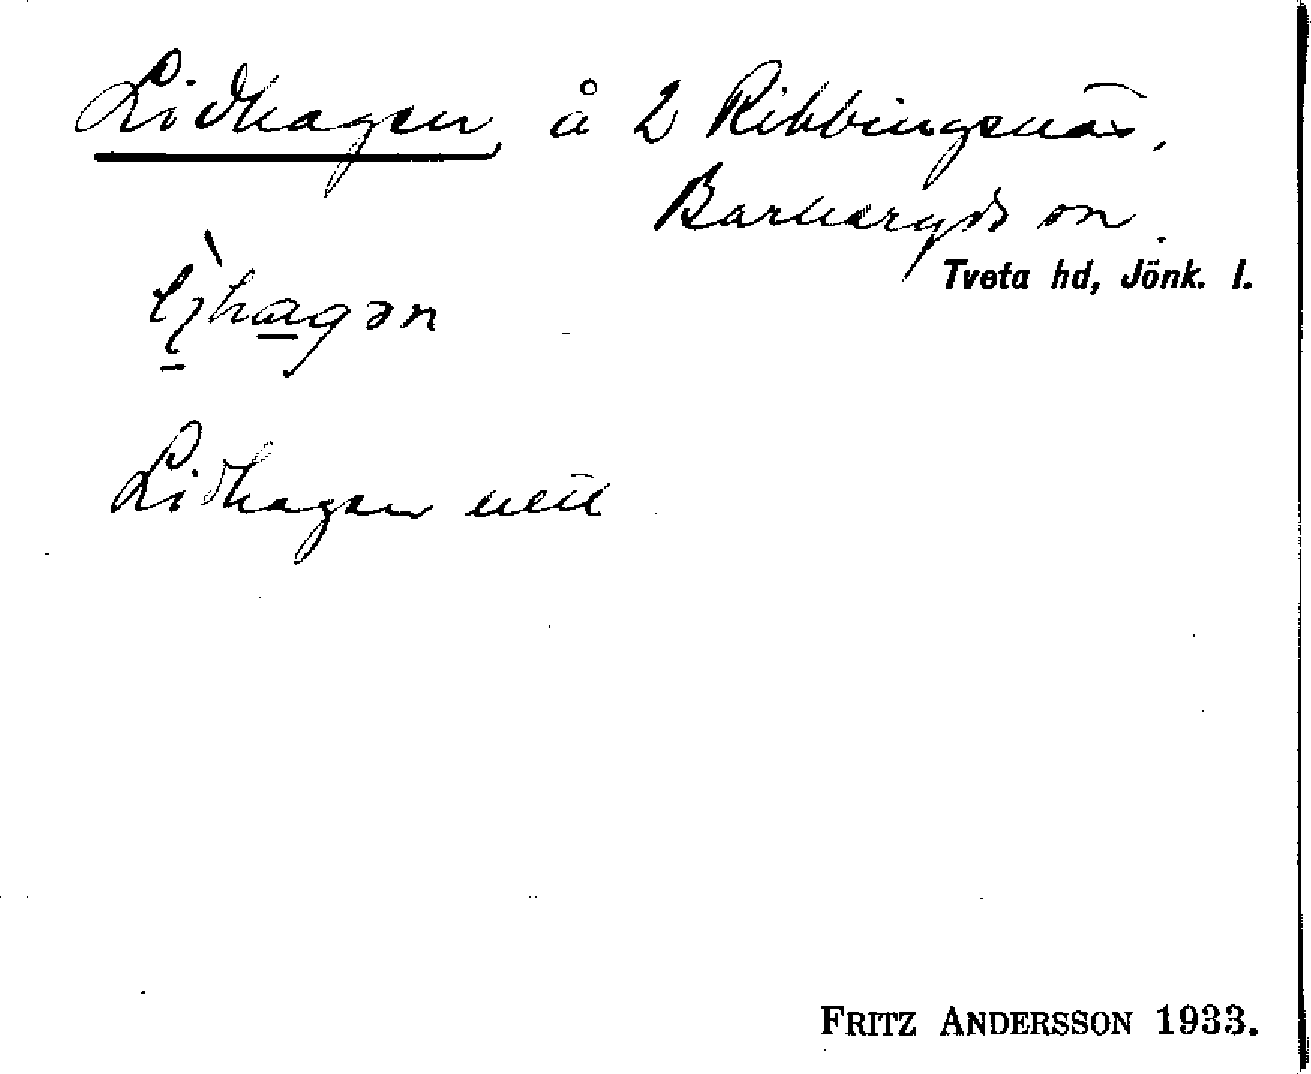 Lidhagen, å 2 Ribbingsnäs,
Barkeryds sn.
Tveta hd, Jönk. l.
Lidhagen
FRITZ ANDERSSON 1933.